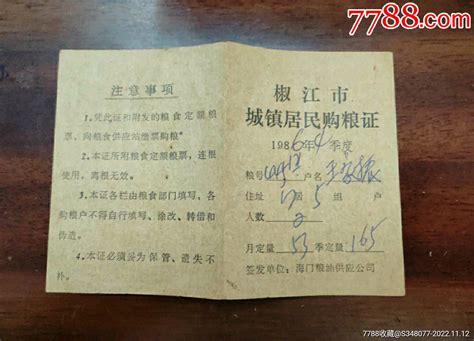 7788.com
注意事项
1.凭此证和附发的粮食定额粮
票，向粮食供应站缴票购粮。
2.本证所附粮食定额粮票，连根
使用、离根无效。
3.本证各栏由粮食部门填写、各
购粮户不得自行填写、涂改、转借和
伪造。
4.本证必须妥为保管、遗失不
补。
椒江市
城镇居民购粮证
1986年4季度
粮号 户名 王
住址 居 5 组 户
人数 2
月定量 53 季定量 165
签发单位：海门粮油供应公司
7788收藏@S348077-2022.11.12